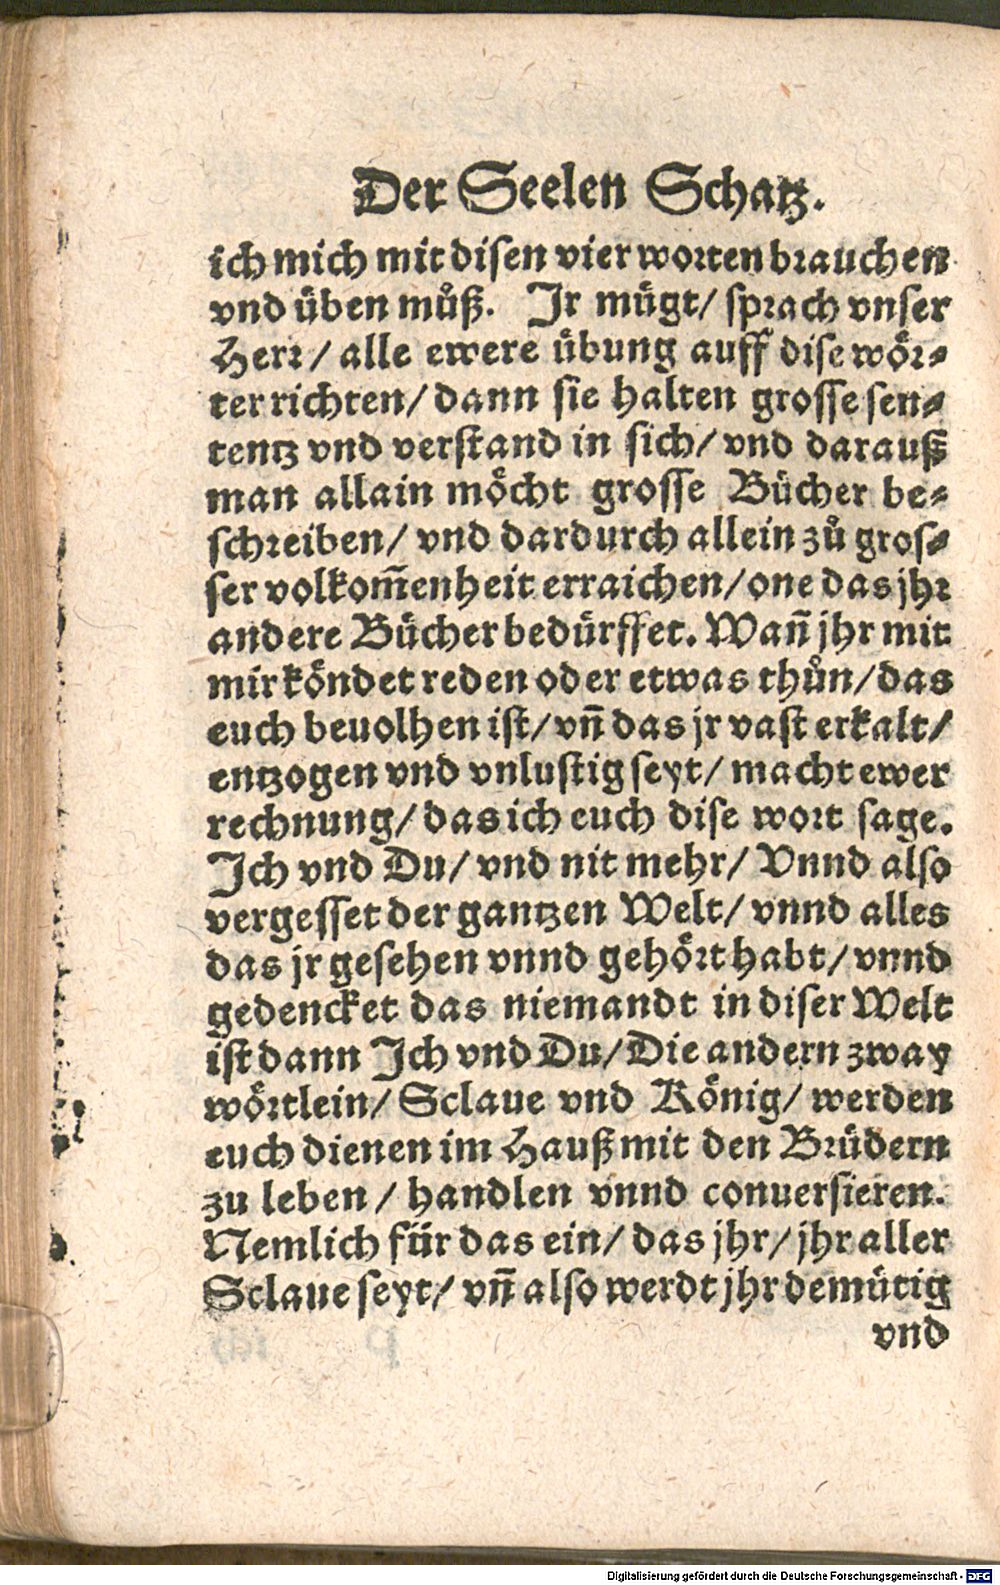 Der Seelen Schatz.
ich mich mit disen vier worten brauchen
vnd üben můß. Jr mügt/ sprach vnser
Herr/ alle ewere übung auff dise wör-
ter richten/ dann sie halten grosse sen-
tentz vnd verstand in sich/ vnd darauß
man allain möcht grosse Bücher be-
schreiben/ vnd dardurch allein zů gros-
ser volkom̃enheit erraichen/ one das jhr
andere Bücher bedürffet. Wan̄ jhr mit
mir köndet reden oder etwas thůn/ das
euch beuolhen ist/ vn̄ das jr vast erkalt/
entzogen vnd vnlustig seyt/ macht ewer
rechnung/ das ich euch dise wort sage.
Jch vnd Du/ vnd nit mehr/ Vnnd also
vergesset der gantzen Welt/ vnnd alles
das jr gesehen vnnd gehört habt/ vnnd
gedencket das niemandt in diser Welt
ist dann Jch vnd Du/ Die andern zway
wörtlein/ Sclaue vnd König/ werden
euch dienen im Hauß mit den Brüdern
zu leben/ handlen vnnd conuersieren.
Nemlich für das ein/ das jhr/ jhr aller
Sclaue seyt/ vn̄ also werdt jhr demütig
vnd
Digitalisierung gefördert durch die Deutsche Forschungsgemeinschaft - DFG